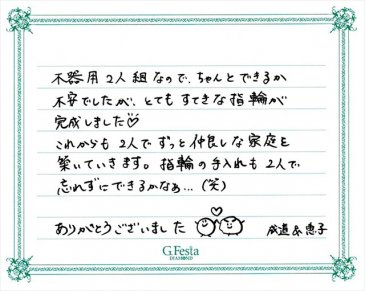 不器用2人組なので、ちゃんとできるか
不安でしたが、とてもすてきな指輪が
完成しました♡
これからも2人でずっと仲良しな家庭を
築いていきます。指輪の手入れも2人で
忘れずにできるかなぁ…(笑)
ありがとうございました 成道&恵子
G.Festa
DIAMOND